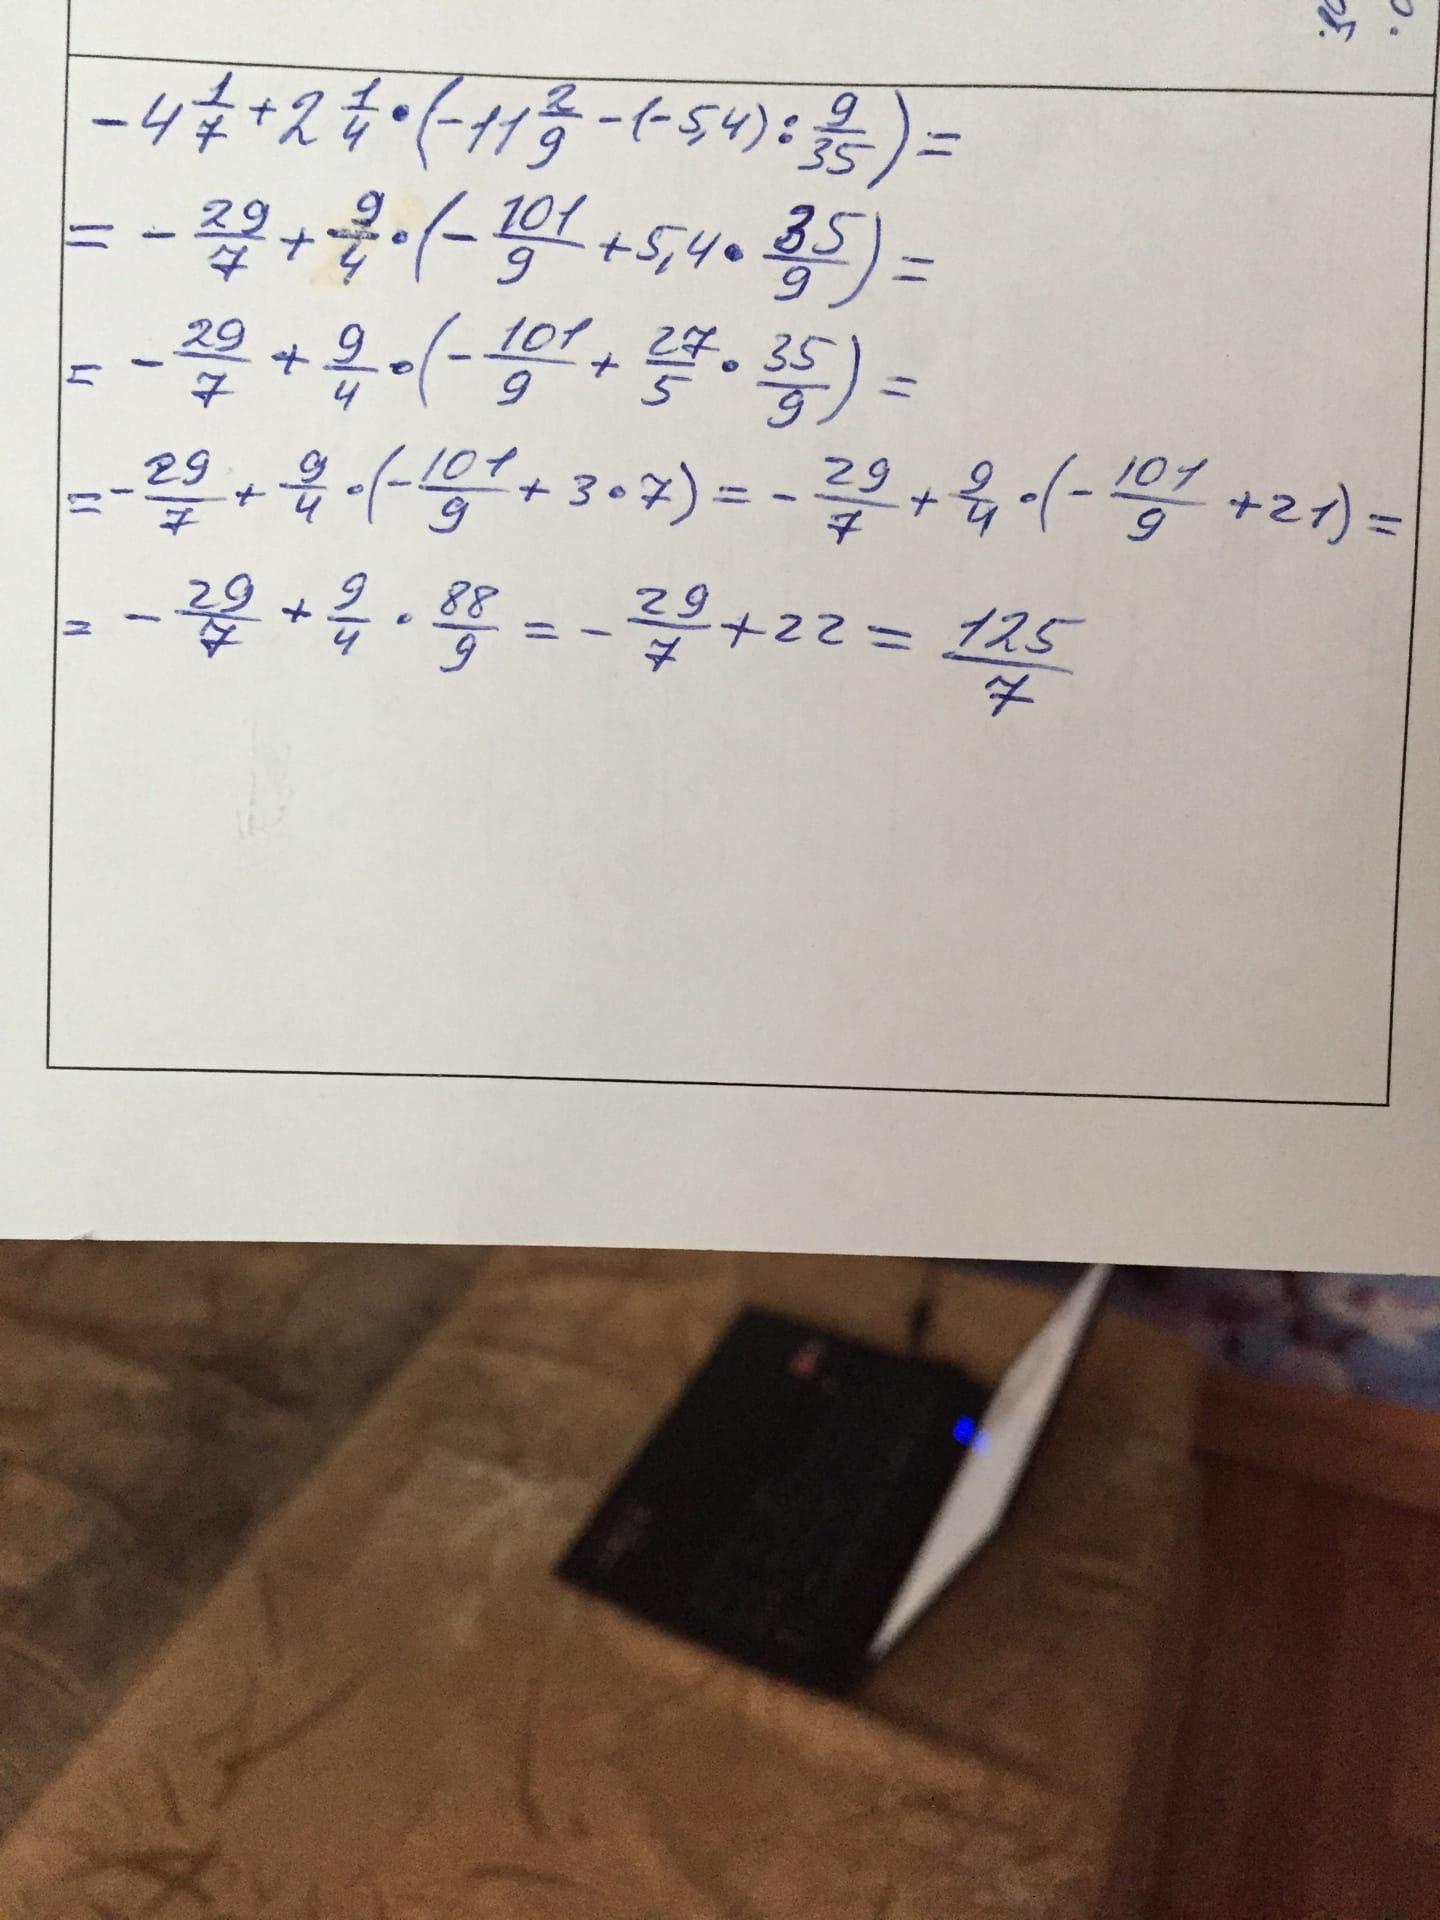 -4 1/7 + 2 1/4 • (-11 2/9 - (-5,4) : 9/35) =
= - 29/7 + 9/4 • (- 101/9 + 5,4 • 35/9) =
= - 29/7 + 9/4 • (- 101/9 + 27/5 • 35/9) =
= - 29/7 + 9/4 • (- 101/9 + 3 • 7) = - 29/7 + 9/4 • (- 101/9 + 21) =
= - 29/7 + 9/4 • 88/9 = - 29/7 + 22 = 125/7